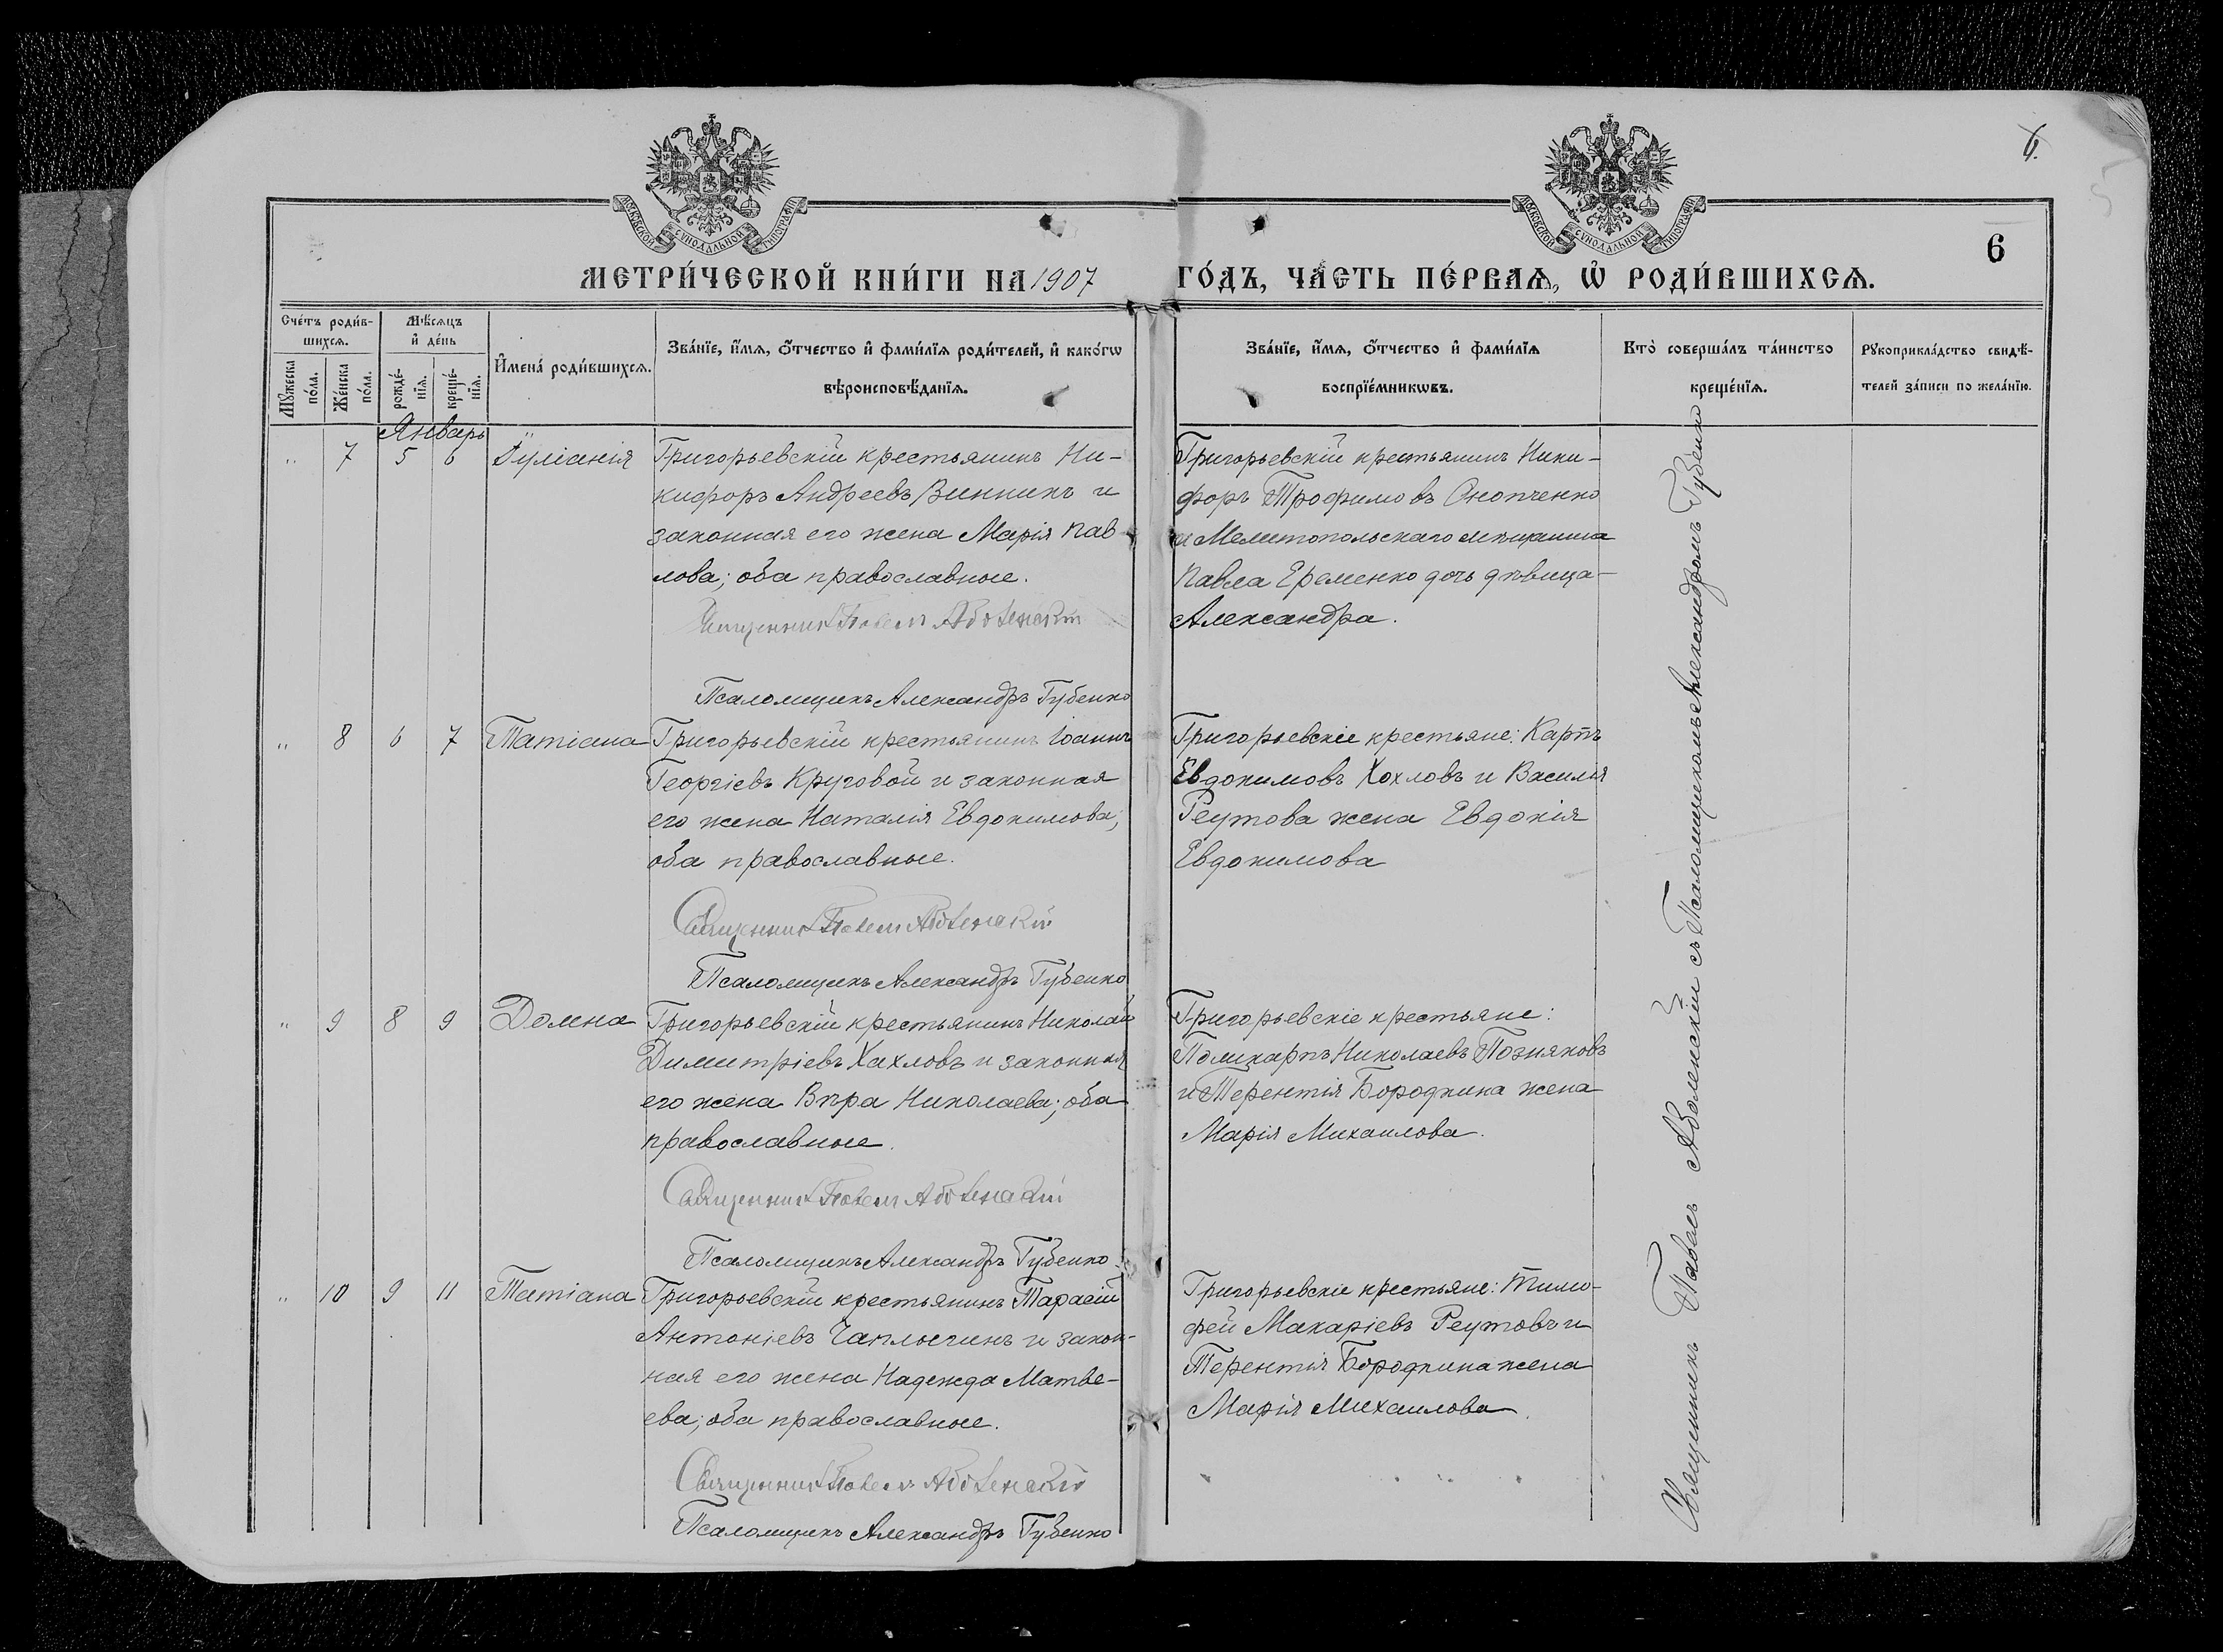 6.
5
МОСКОВСКОЙ СУНОДАЛЬНОЙ ТИПОГРАФІИ
МОСКОВСКОЙ СУНОДАЛЬНОЙ ТИПОГРАФІИ
6
МЕТРИ́ЧЕСКОЙ КНИ́ГИ НА 1907 ГО́ДЪ, ЧА́СТЬ ПЕ́РВАѦ, Ѡ҆ РОДИ́ВШИХСѦ.
Сче́тъ роди́в-
шихсѧ.
Мꙋ́жеска по́ла.
Же́нска по́ла.
Мѣ́сѧцъ
и҆ де́нь
рожде́-
нїѧ.
креще́-
нїѧ.
И҆мена̀ роди́вшихсѧ.
Зва́нїе, и҆́мѧ, ѻ҆́тчество и҆ фами́лїѧ роди́телей, и҆ како́гѡ
вѣроисповѣ́данїѧ.
Зва́нїе, и҆́мѧ, ѻ҆́тчество и҆ фами́лїѧ
воспрїе́мникѡвъ.
Кто̀ соверша́лъ та́инство
креще́нїѧ.
Рꙋкоприкла́дство свидѣ́-
телей за́писи по жела́нїю.
Январь
" 7 5 6 Іуліанія
Григорьевскій крестьянинъ Ни-
кифоръ Андреевъ Винникъ и
законная его жена Марія Пав-
лова; оба православные.
Священникъ Павелъ Аболенскій
Псаломщикъ Александръ Губенко
Григорьевскій крестьянинъ Ники-
форъ Трофимовъ Онопченко
и Мелитопольскаго мѣщанина
Павла Еременко дочь дѣвица
Александра.
" 8 6 7 Татіана
Григорьевскій крестьянинъ Іоаннъ
Георгіевъ Круговой и законная
его жена Наталія Евдокимова;
оба православные.
Священникъ Павелъ Аболенскій
Псаломщикъ Александръ Губенко
Григорьевскіе крестьяне: Карпъ
Евдокимовъ Хохловъ и Василія
Реутова жена Евдокія
Евдокимова
" 9 8 9 Домна
Григорьевскій крестьянинъ Николай
Димитріевъ Хахловъ и законная
его жена Вѣра Николаева; оба
православные.
Священникъ Павелъ Аболенскій
Псаломщикъ Александръ Губенко
Григорьевскіе крестьяне:
Поликарпъ Николаевъ Позняковъ
и Терентія Бородкина жена
Марія Михаилова.
" 10 9 11 Татіана
Григорьевскій крестьянинъ Тарасій
Антоніевъ Чаплыгинъ и закон-
ная его жена Надежда Матве-
ева; оба православные.
Священникъ Павелъ Аболенскій
Псаломщикъ Александръ Губенко
Григорьевскіе крестьяне: Тимо-
фей Макаріевъ Реутовъ и
Терентія Бородкина жена
Марія Михаилова.
Священникъ Павелъ Аболенскій съ Псаломщикомъ Александромъ Губенко